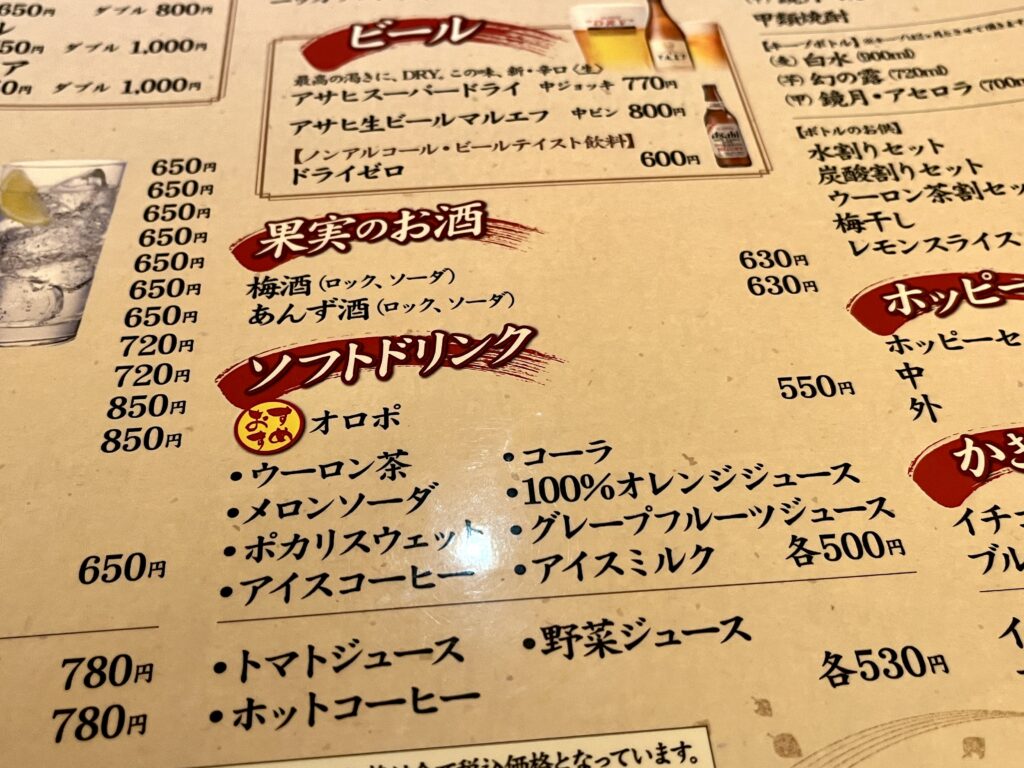 650円 ダブル 800円
ル
50円 ダブル 1,000円
ア
円 ダブル 1,000円
650円
650円
650円
650円
650円
650円
650円
720円
720円
850円
850円
650円
780円
780円
ビール
最高の渇きに、DRY。この味、新・辛口〈生〉
アサヒスーパードライ 中ジョッキ 770円
アサヒ生ビールマルエフ 中ビン 800円
【ノンアルコール・ビールテイスト飲料】
ドライゼロ 600円
Asahi
果実のお酒
梅酒(ロック、ソーダ) 630円
あんず酒(ロック、ソーダ) 630円
ソフトドリンク
おすすめ オロポ 550円
・ウーロン茶 ・コーラ
・メロンソーダ ・100%オレンジジュース
・ポカリスウェット ・グレープフルーツジュース
・アイスコーヒー ・アイスミルク 各500円
・トマトジュース ・野菜ジュース
・ホットコーヒー 各530円
税込価格となっています。
甲類焼酎
【キープボトル】
(麦) 白水 (900ml)
(芋) 幻の露 (720ml)
(甲) 鏡月・アセロラ (700m
【ボトルのお供】
水割りセット
炭酸割りセット
ウーロン茶割セッ
梅干し
レモンスライス
ホッピー
ホッピーセ
中
外
かき
イチ
ブル
イ